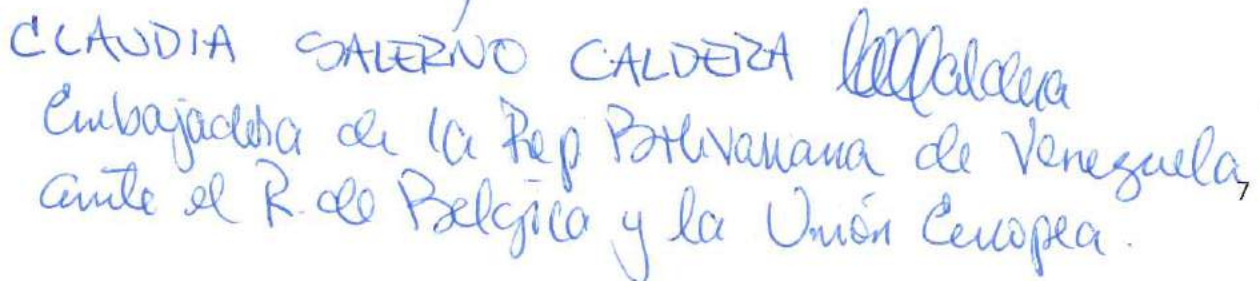 CLAUDIA SALERNO CALDERA
Embajadora de la Rep Bolivariana de Venezuela,
ante el R. de Belgica y la Unión Europea.